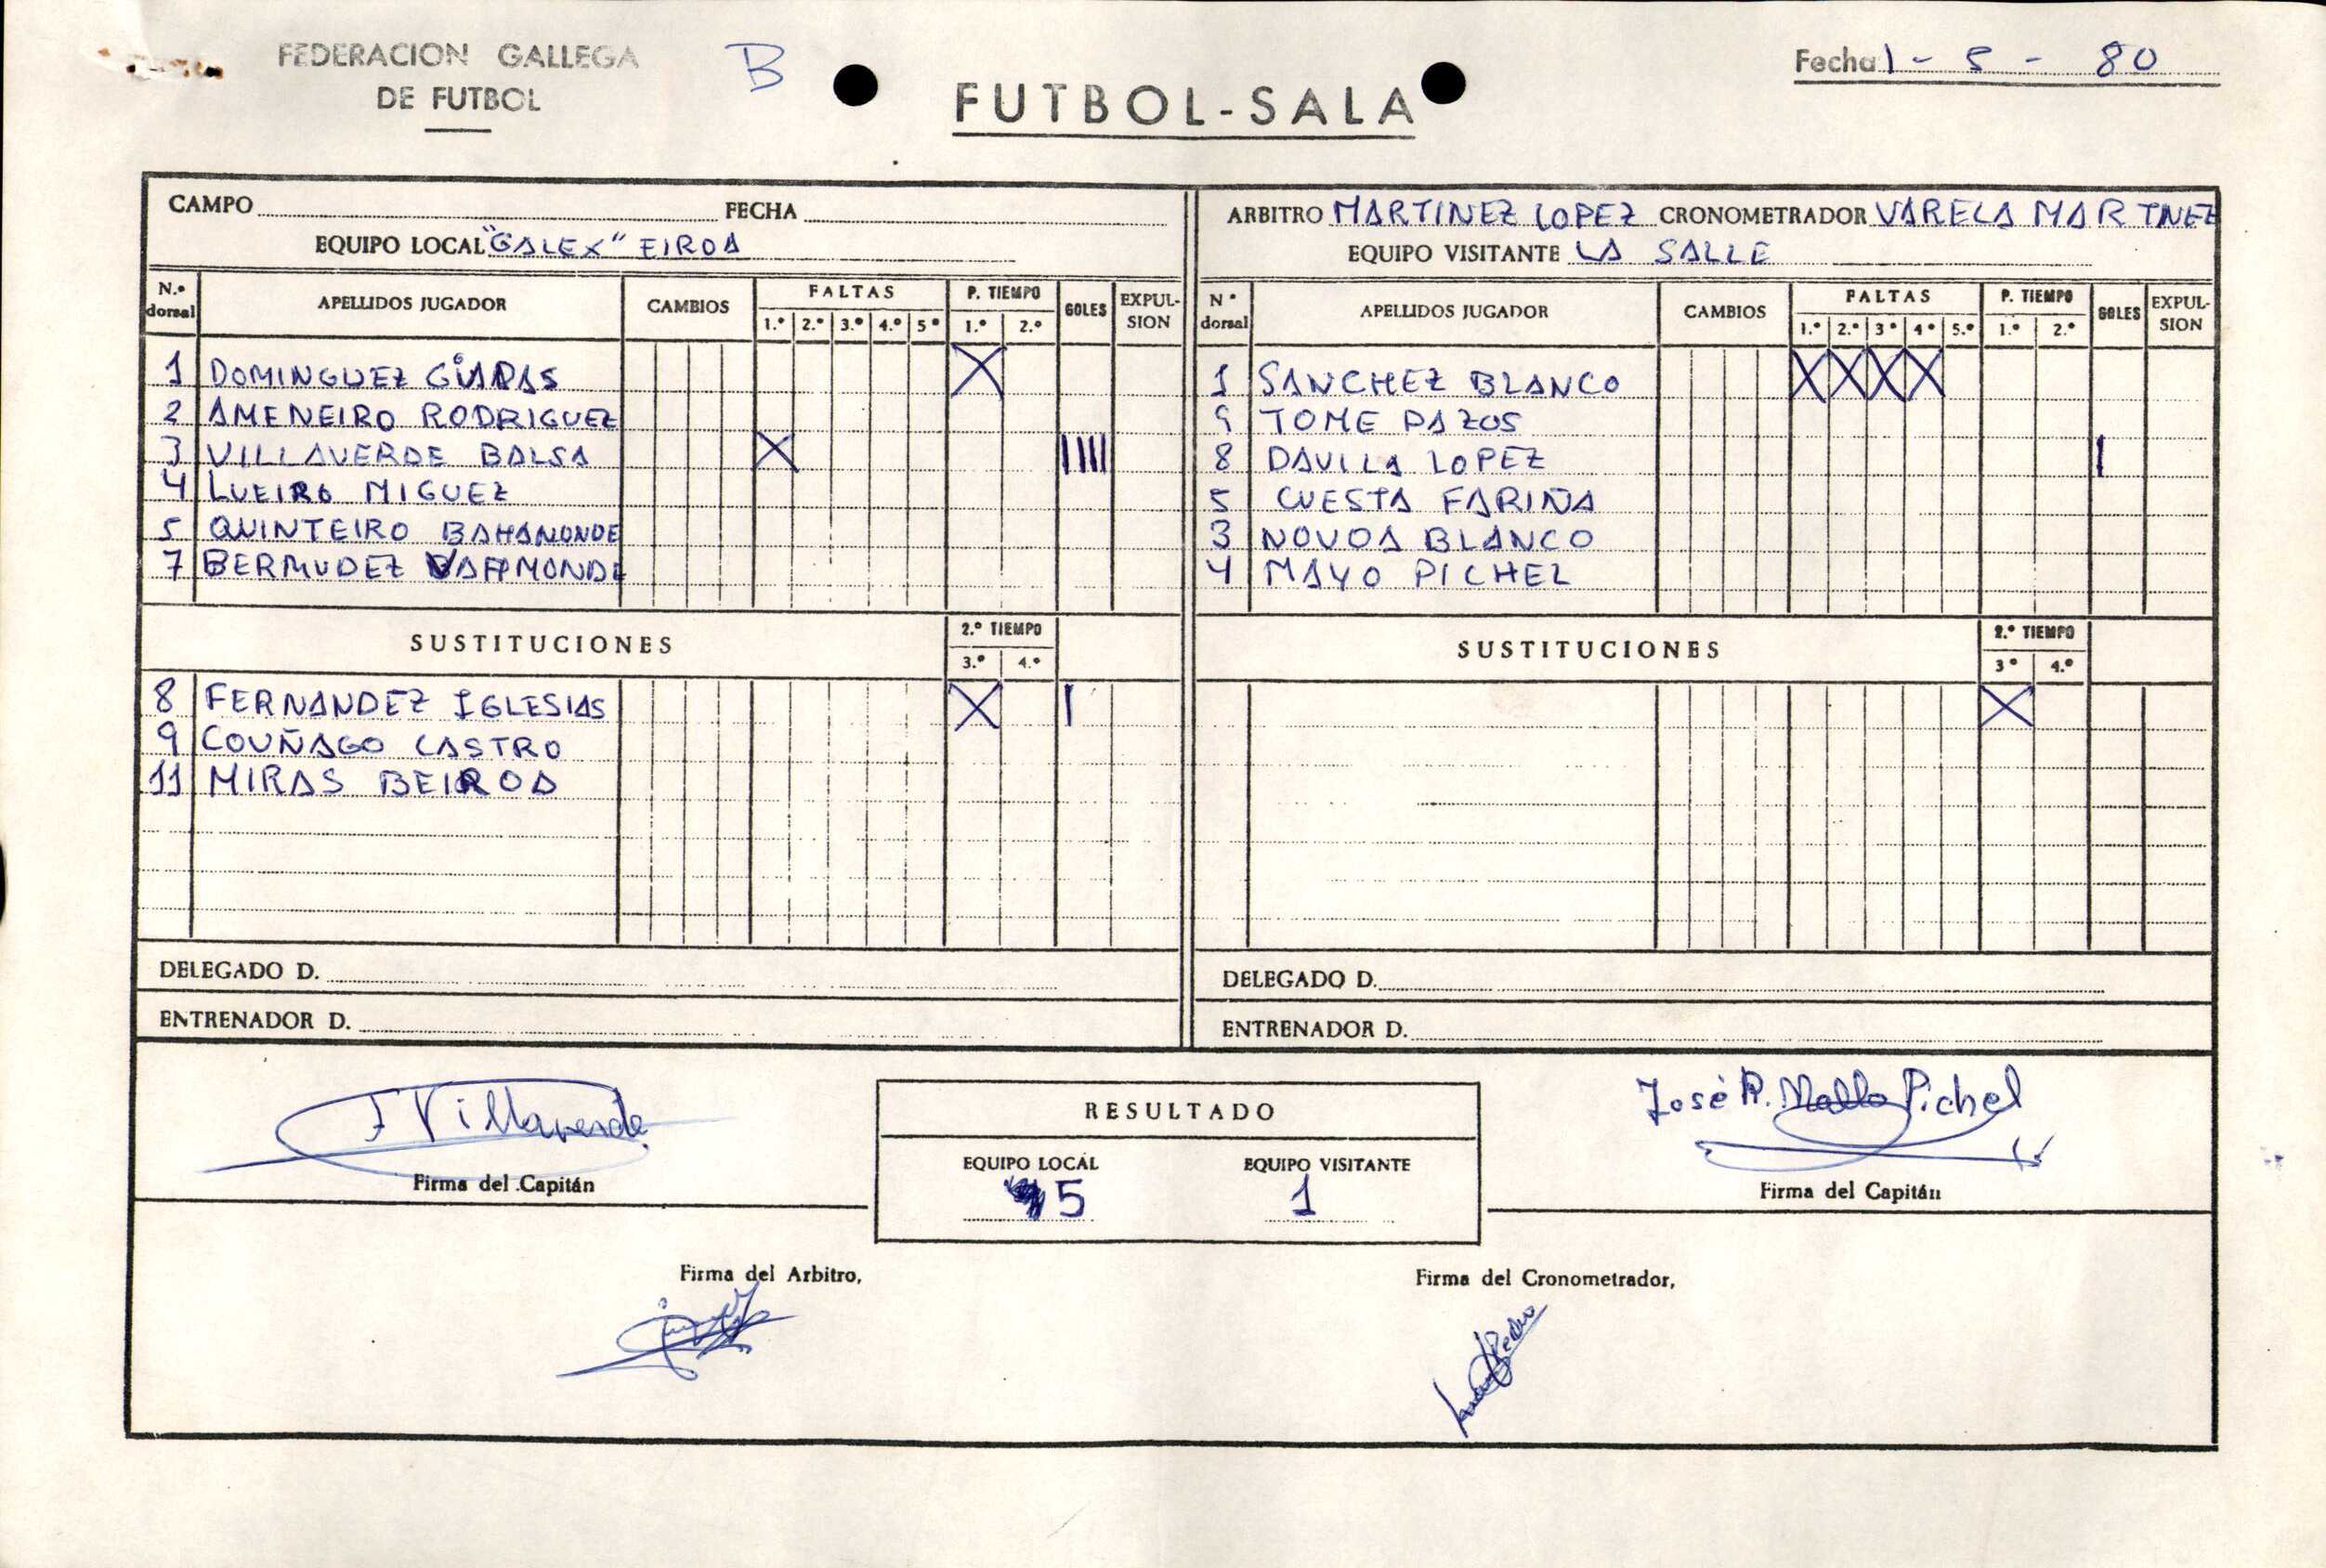 FEDERACION GALLEGA
DE FUTBOL
B
FUTBOL-SALA
Fecha 1 - 5 - 80
CAMPO FECHA
EQUIPO LOCAL "GALEX" EIROA
ARBITRO MARTINEZ LOPEZ CRONOMETRADOR VARELA MARTNEZ
EQUIPO VISITANTE LA SALLE
N.º dorsal APELLIDOS JUGADOR CAMBIOS FALTAS 1.º 2.º 3.º 4.º 5º P. TIEMPO 1.º 2.º GOLES EXPUL-SION
1 DOMINGUEZ
2 AMENEIRO RODRIGUEZ
3 VILLAVERDE BALSA X IIII
4 LUEIRO MIGUEZ
5 QUINTEIRO BAHAMONDE
7 BERMUDEZ
SUSTITUCIONES 2.º TIEMPO 3.º 4.º
8 FERNANDEZ IGLESIAS X I
9 COUÑAGO CASTRO
11 MIRAS BEIROA
DELEGADO D.
ENTRENADOR D.
N º dorsal APELLIDOS JUGADOR CAMBIOS FALTAS 1.º 2.º 3º 4º 5.º P. TIEMPO 1.º 2.º GOLES EXPUL-SION
1 SANCHEZ BLANCO X X X X
9 TOME PAZOS
8 DAVILA LOPEZ I
5 CUESTA FARIÑA
3 NOVOA BLANCO
4 MAYO PICHEL
SUSTITUCIONES 2.º TIEMPO 3º 4.º
X
DELEGADO D.
ENTRENADOR D.
F Villaverde
Firma del Capitán
RESULTADO
EQUIPO LOCAL EQUIPO VISITANTE
5 1
José R. Pichel
Firma del Capitán
Firma del Arbitro,
Firma del Cronometrador,